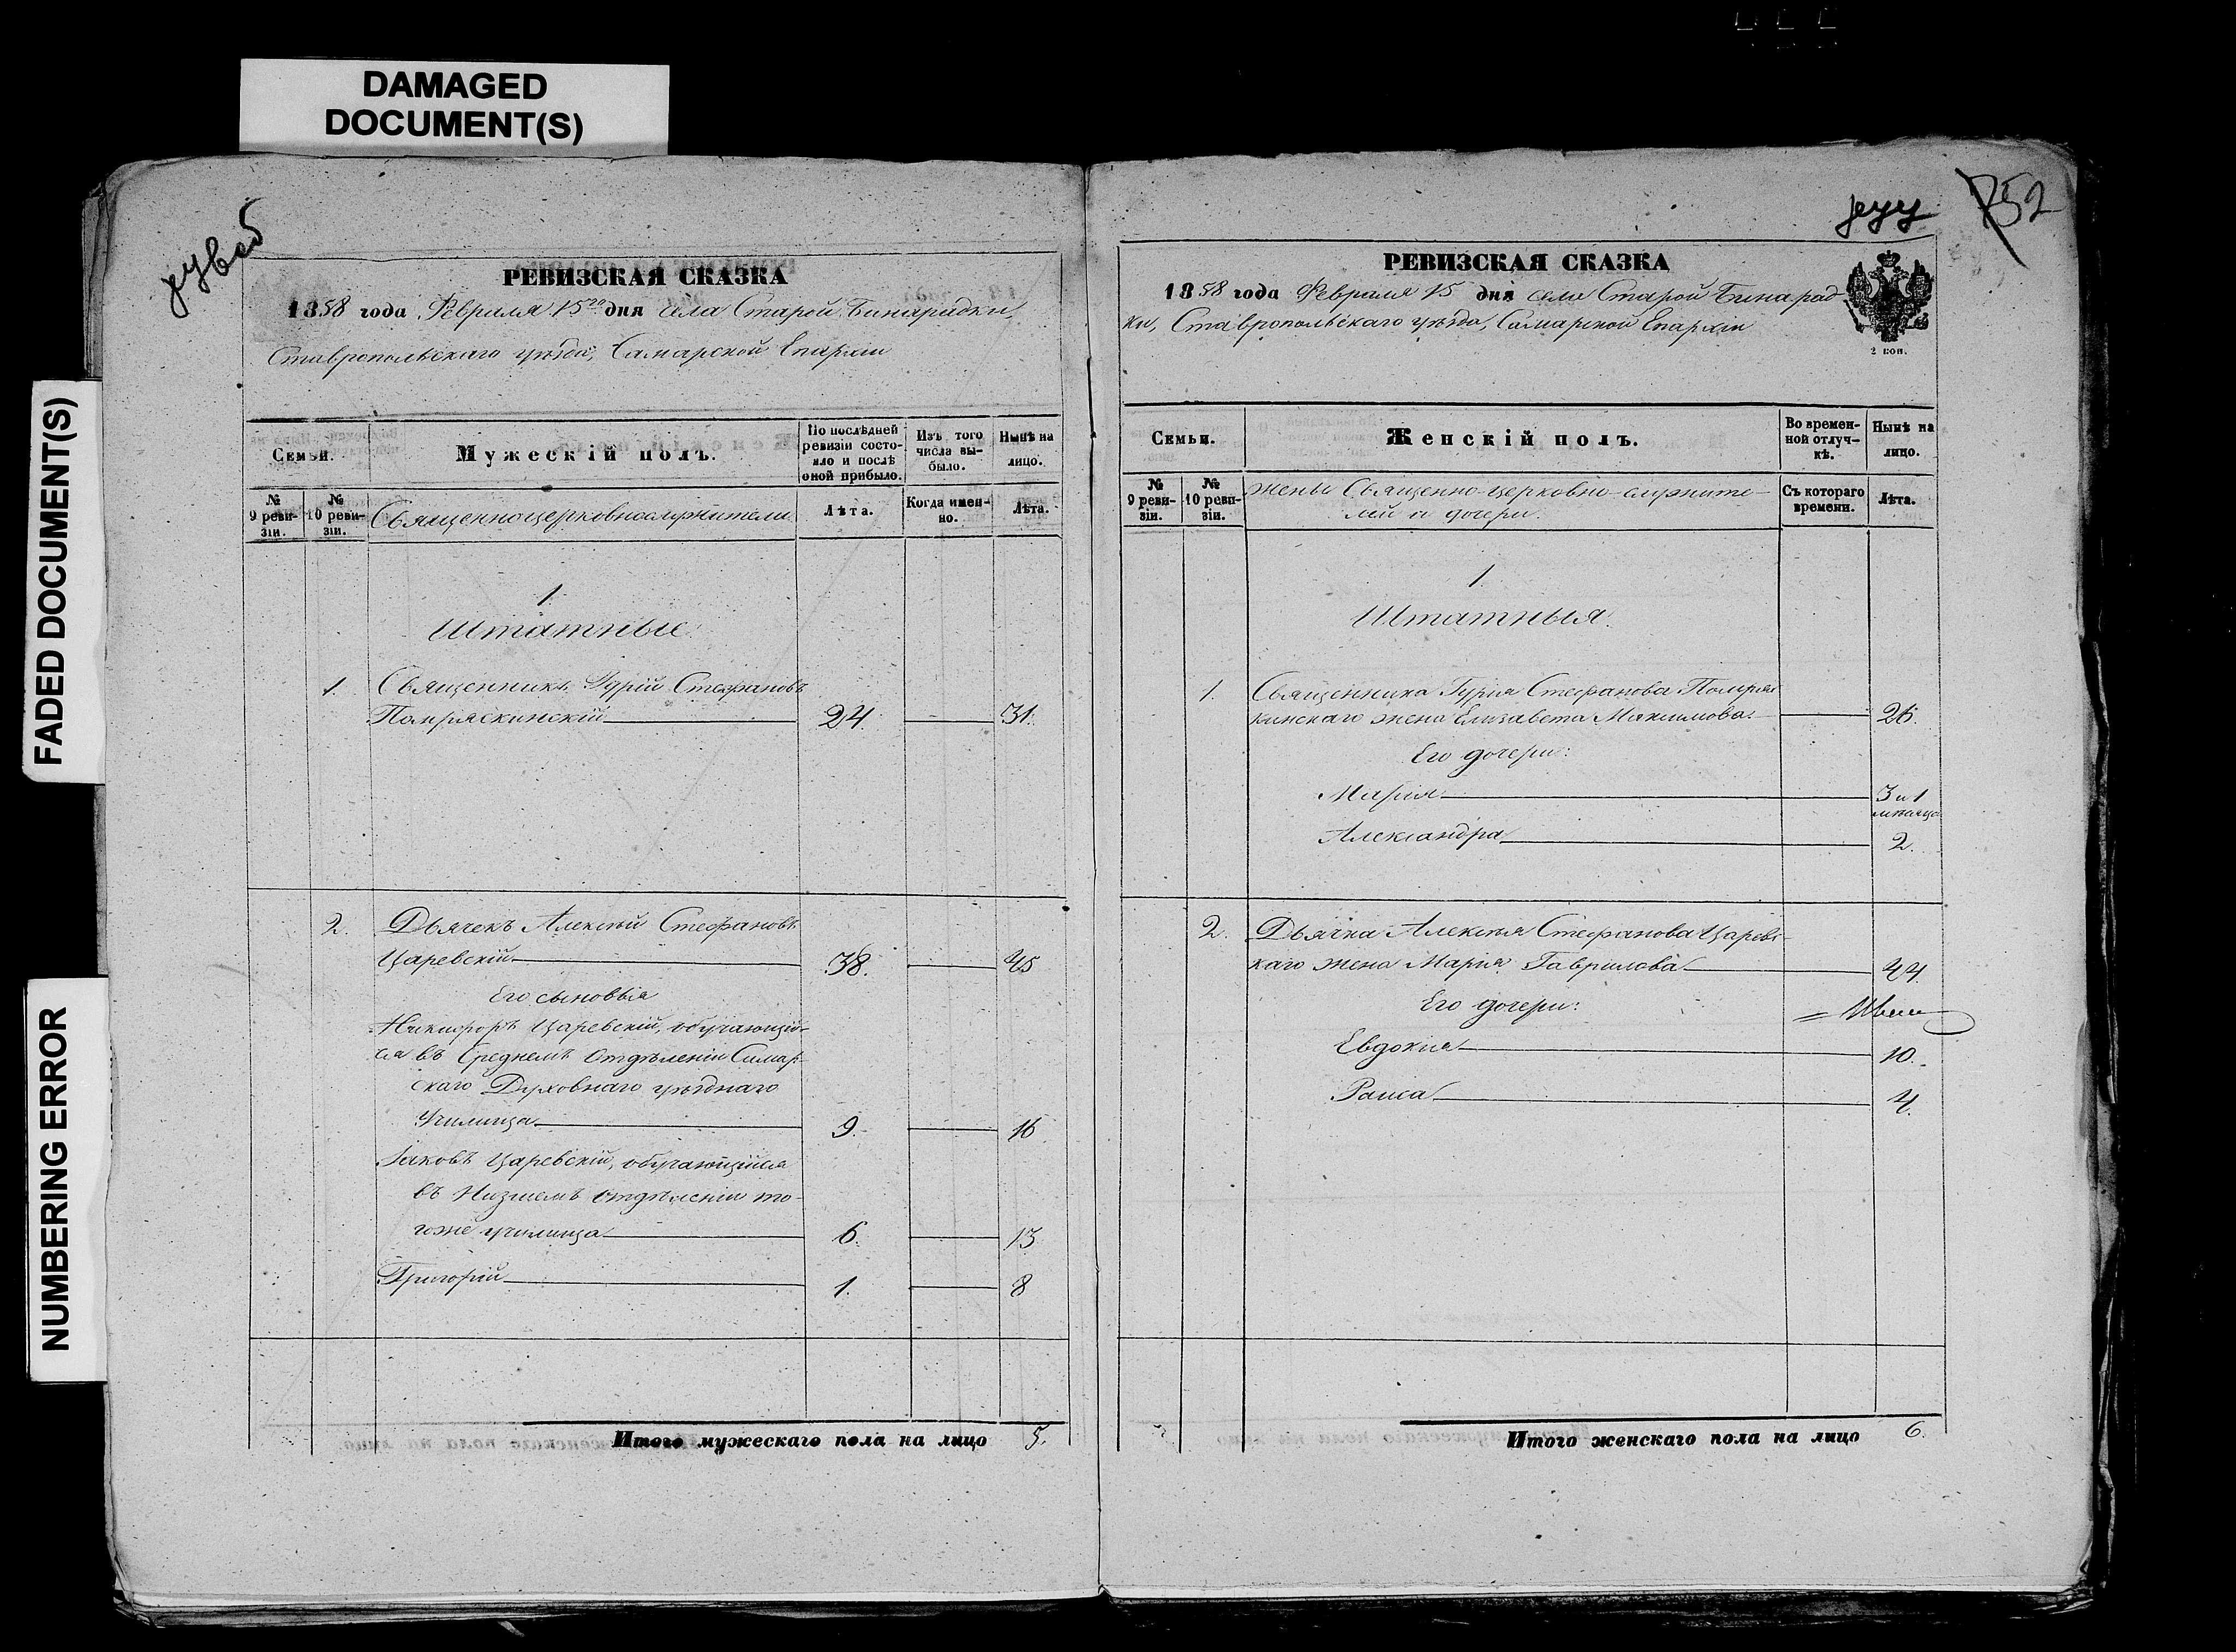 DAMAGED
DOCUMENT(S)
FADED DOCUMENT(S)
NUMBERING ERROR
РЕВИЗСКАЯ СКАЗКА
1858 года Февраля 15го дня села Старой Бинарадки,
Ставропольскаго уѣзда, Самарской Епархіи
Семьи.
Мужескій полъ.
По послѣдней
ревизіи состо-
яло и послѣ
оной прибыло.
Изъ того
числа вы-
было.
Нынѣ на
лицо.
№
9 реви-
зіи.
№
10 реви-
зіи.
Священноцерковнослужители
Лѣта.
Когда имен-
но.
Лѣта.
1.
Штатные:
1. Священникъ Гурій Стефановъ
Помряскинскій 24. 31.
2. Дьячекъ Алексѣй Стефановъ
Царевскій 38. 45
Его сыновья
Никифоръ Царевскій, обучающій-
ся въ Среднемъ Отдѣленіи Самар-
скаго Духовнаго уѣзднаго
Училища 9. 16
Іаковъ Царевскій, обучающійся
въ Низшемъ отдѣленіи то-
гоже училища 6. 13
Григорій 1. 8
Итого мужескаго пола на лицо 5.
352
РЕВИЗСКАЯ СКАЗКА
1858 года Февраля 15 дня села Старой Бинарад-
ки, Ставропольскаго уѣзда, Самарской Епархіи
2 коп.
Семьи.
Женскій полъ.
Во времен-
ной отлуч-
кѣ.
Нынѣ на
лицо.
№
9 реви-
зіи.
№
10 реви-
зіи.
жены Священно-церковно-служите-
лей и дочери.
Съ котораго
времени.
Лѣта.
1.
Штатныя.
1. Священника Гурія Стефанова Помряс
кинскаго жена Елизавета Максимова 26.
Его дочери:
Марія 3 и 1
мѣсяца
Александра 2.
2. Дьячка Алексѣя Стефанова Царевс-
каго жена Марія Гаврилова 44
Его дочери:
Евдокія 10.
Раиса 4.
Итого женскаго пола на лицо 6.